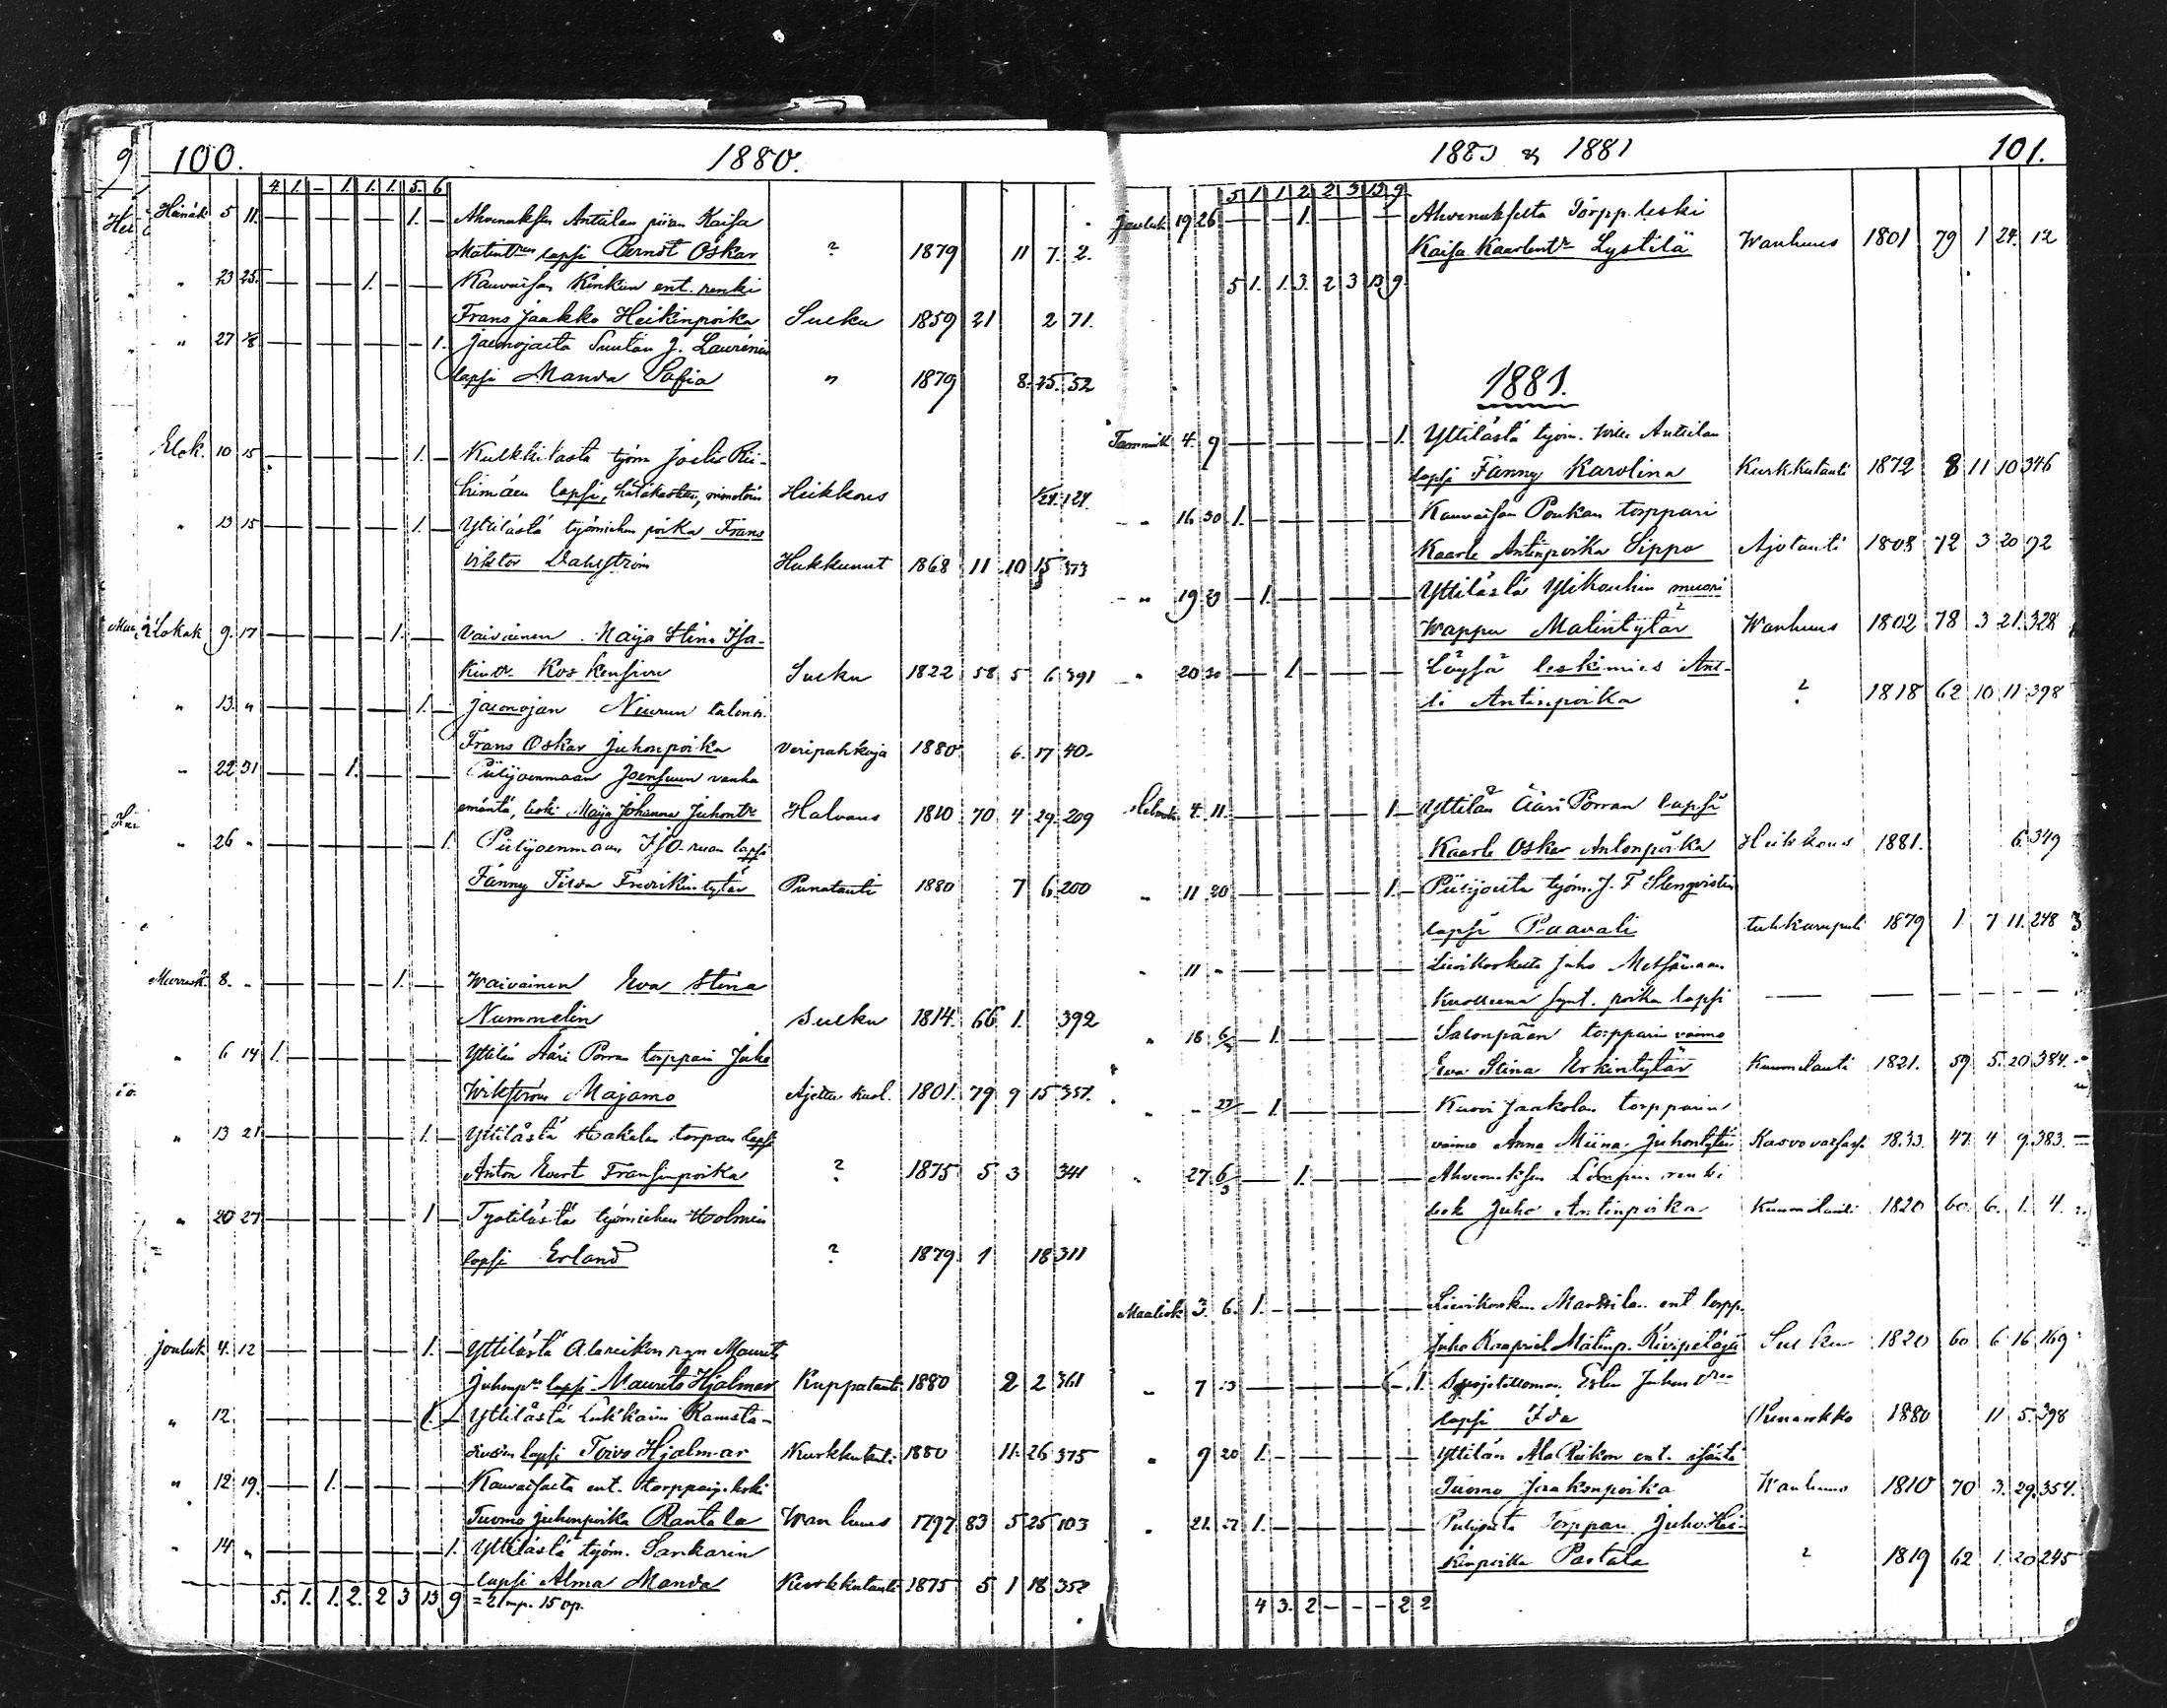 100. 1880.
4. 1. - 1. 1. 1. 5. 6
Heinäk 5 11. 1. Ahvenuksen Anttilan piian Kaisa
Matint:ren lapsi Berndt Oskar ? 1879 11 7. 2.
" 23 25. 1. Kauvaisan Kinkun ent. renki
Frans Jaakko Heikinpoika Sueku 1859 21 2 71.
" 27 1/8 1. Jaconojasta Suutan J. Laurénin
lapsi Manda Sofia " 1879 8. 25. 52
Elok. 10 15 1. Kulkkilasta työm
lapsi, hätäkastettu, nimetöin Heikkous 124.
" 13 15 1. Yttilästä työmiehen poika Frans
Viktor Dahlström Hukkunut 1868 11 10 15 373
Lokak 9. 17 1. Vaivainen Maija Stina Isa-
kint. Koskensivu Sueku 1822 58 5 6 391
" 13. " 1. Niurun
Frans Oskar Juhonpoika Veripahkoja 1880. 6. 17 40.
" 22 31 1. Piilijoenmaan Joensuun vanha
emäntä, leski Maija Johanna Juhont:r Halvaus 1810 70 4 29. 209
" 26 " 1. Piilijoenmaan Iso-
Fanny Tilda Fredrikintytär Punatauti 1880 7 6. 200
Marrask. 8. " 1. Waivainen Eva Stina
Nummelin Sueku 1814. 66 1. 392
" 6 14 1. Yttilän Ääri Porran torppari Juho
Wikström Majamo Ajettu kuol. 1801. 79 9 15 357.
" 13 21 1. Yttilästä Hakalan torpan lapsi
Anton Evert Fransinpoika ? 1875 5 3 341
" 20 27 1 työmiehen Holmin
lapsi Erland ? 1879. 1 18 311
Jouluk 4. 12 1. Yttilästä Alareikon Maurits
Juhonp:n lapsi Maurits Hjalmar Kuppatauti 1880 2 2 361
" 12. 1. Yttilästä
lapsi Toivo Hjalmar Kurkkutauti 1880 11. 26 375
" 12 19. 1. Kauvaisasta ent. torpparij. leski
Tuomo Juhonpoika Rantala Wanhuus 1797 83 5 25 103
" 14 " 1. Yttilästä työm. Sankarin
lapsi Alma Manda Kurkkutauti 1875 5 1 18 352
5. 1. 1. 2. 2 3 13 9 = 2 mp. 15 vp.
1880 & 1881 101.
5 1 1 2 2 3 13 9
Jouluk 19 26 1. Ahvenukselta Torpp. leski
Kaisa Kaarlent:r Lystilä Wanhuus 1801 79 1 24. 12
5 1. 1. 3. 2 3 13 9.
1881.
Tammik 4. 9 1. Yttilästä työm. Wille Anttilan
lapsi Fanny Karolina Kurkkutauti 1872 8 11 10 346
" 16 30 1. Kauvaisan Poukan torppari
Kaarle Antinpoika Sippo Ajotauti 1808 72 3 20 92
" 19 30 1. Yttilästä Ylikouhin muori
Wappu Matintytär Wanhuus 1802 78 3 21. 328
" 20 30 1. Löysä leskimies Ant-
ti Antinpoika ? 1818 62 10 11 398
Helmik 4. 11. 1. Yttilän Ääri Porran lapsi
Kaarle Oskar Antonpoika Heikkous 1881. 6. 349
" 11 20 1. Piilijoelta työm. J. F Stenqvistin
lapsi Paavali tuhkarupuli 1879 1. 7 11. 248
" 11 " Lievikoskelta Juho Metsämaan
kuolleena synt. poika lapsi
" 18 6/3 1. Salonpään torpparin vaimo
Eva Stina Erkintytär Kuumetauti 1821. 59 5. 20 384.
" " 27 1. Kuovi Jaakolan torpparin
vaimo Anna Miina Juhontytär 1833. 47. 4 9. 383.
" 27 6/3 1. Ahvenuksen renki
lesk Juho Antinpoika Kuumetauti 1820 60. 6. 1. 4.
Maalisk 3. 6. 1. Lievikosken Mattilan ent torpp.
Juho Kaapriel Matinp. Kivipeltojä Sueku 1820 60 6 16 169
" 7 13 1. Esten Juhont:ren
lapsi Ida Punarokko 1880 11 5. 398
" 9 20 1. Yttilän Ala Reikon ent. isäntä
Tuomo Jaakonpoika Wanhuus 1810 70 3. 29. 354.
" 21. 27 1. Torppari Juho Hei-
kinpoika Partala ? 1819 62 1. 20 245
4 3. 2 - - - 2 2